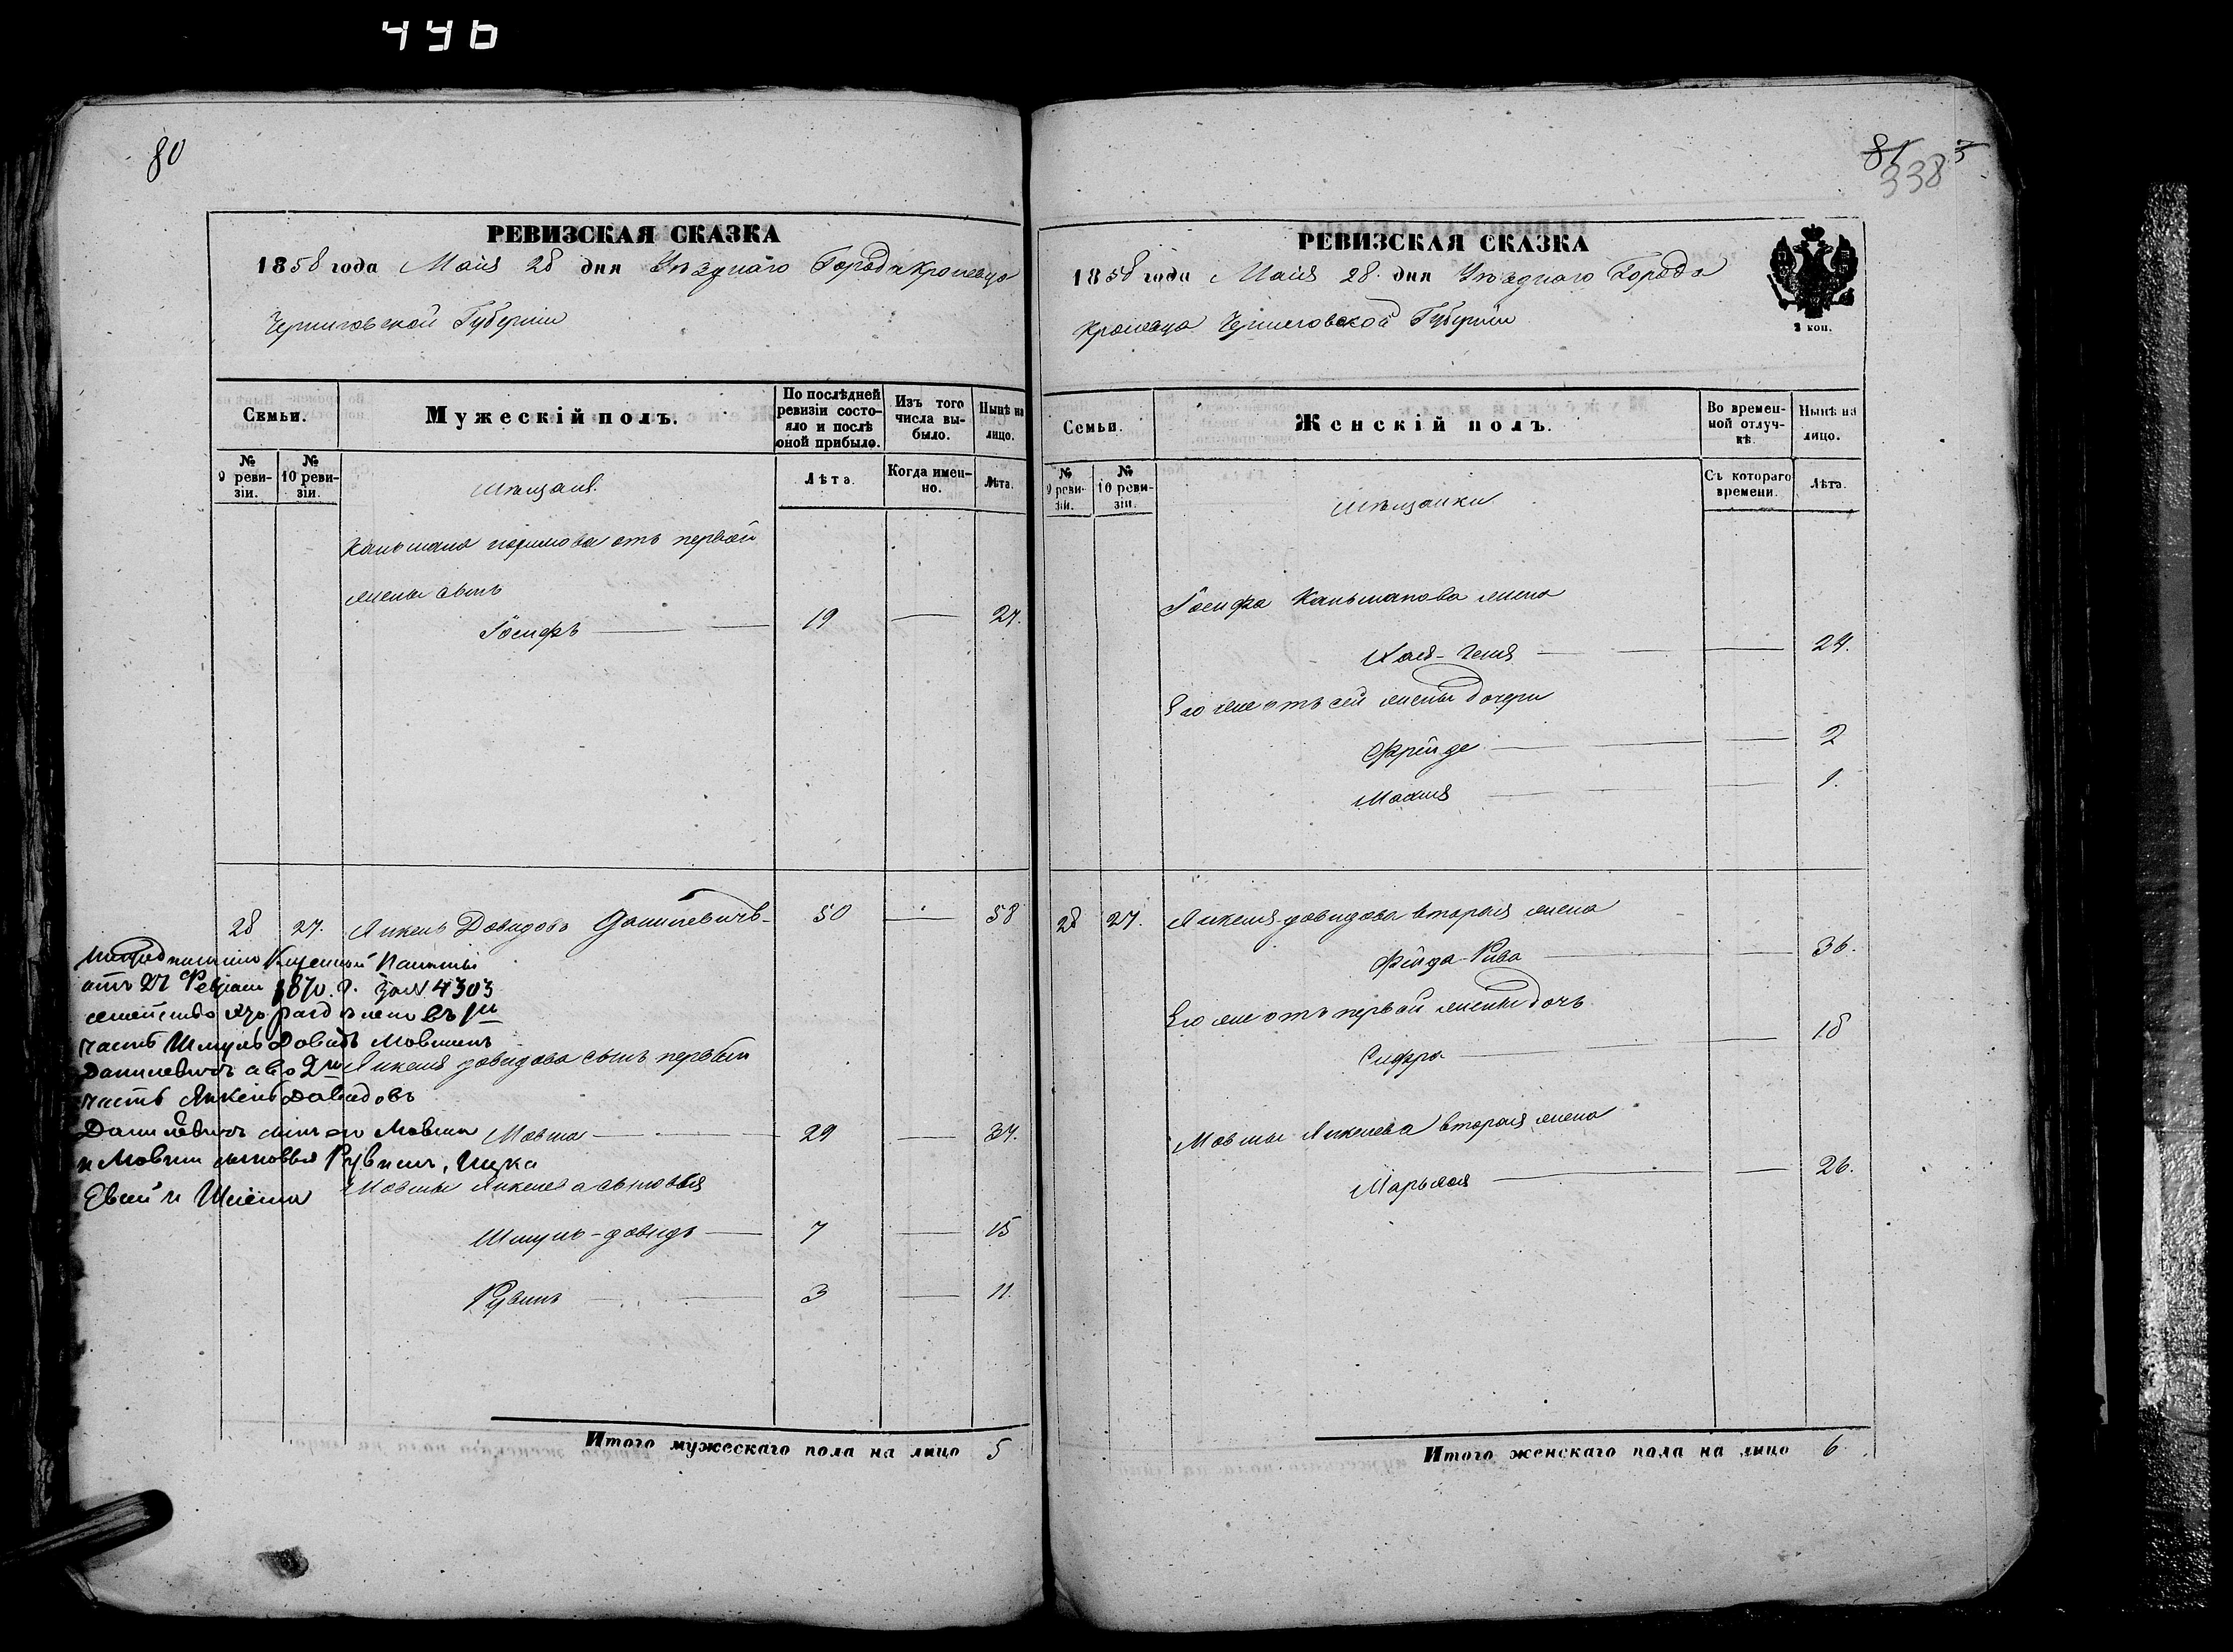 446
80
РЕВИЗСКАЯ СКАЗКА
1858 года Мая 28 дня Уѣзднаго Города Кролевца
Черниговской Губернии
Семьи.
Мужескій полъ.
По послѣдней ревизіи состояло и послѣ оной прибыло.
Изъ того числа выбыло.
Нынѣ на лицо.
№ 9 ревизіи.
№ 10 ревизіи.
мѣщане.
Лѣта.
Когда именно.
Лѣта.
от первой
жены сынъ
Іосифъ 19 27.
28 27. Янкель Довидовъ Данилевичъ 50 58
Казенной Палаты
отъ 27 Февраля 1870 г. за № 4303
семейство это раздѣлено въ 1ю
часть Шмуль Довидъ Мовшинъ
Данилевичъ а во 2ю
часть Янкель Давидовъ
Янкеля Довидова сынъ первый
Данилевичъ сынъ его Мовша
Мовша 29 37.
и Мовши сыновья Рувинъ, Ицка
Мовши Янкелева сыновья
Евсей и Шлёма
Шмуль-Довидъ 7 15
Рувинъ 3 11.
Итого мужескаго пола на лицо 5
81
338
РЕВИЗСКАЯ СКАЗКА
1858 года Мая 28. дня Уѣзднаго Города
Кролевца Черниговской Губернии
2 коп.
Семьи.
Женскій полъ.
Во временной отлучкѣ.
Нынѣ на лицо.
№ 9 ревизіи.
№ 10 ревизіи.
мѣщанки
Съ котораго времени.
Лѣта.
Іосифа жена
24.
Его же отъ сей жены дочери
Фрейде 2
1.
28 27. Янкеля Довидова вторая жена
Фейда-Рива 36.
Его же отъ первой жены дочь
Сифра 18
Мовши Янкелева вторая жена
Марьяся 26.
Итого женскаго пола на лицо 6.